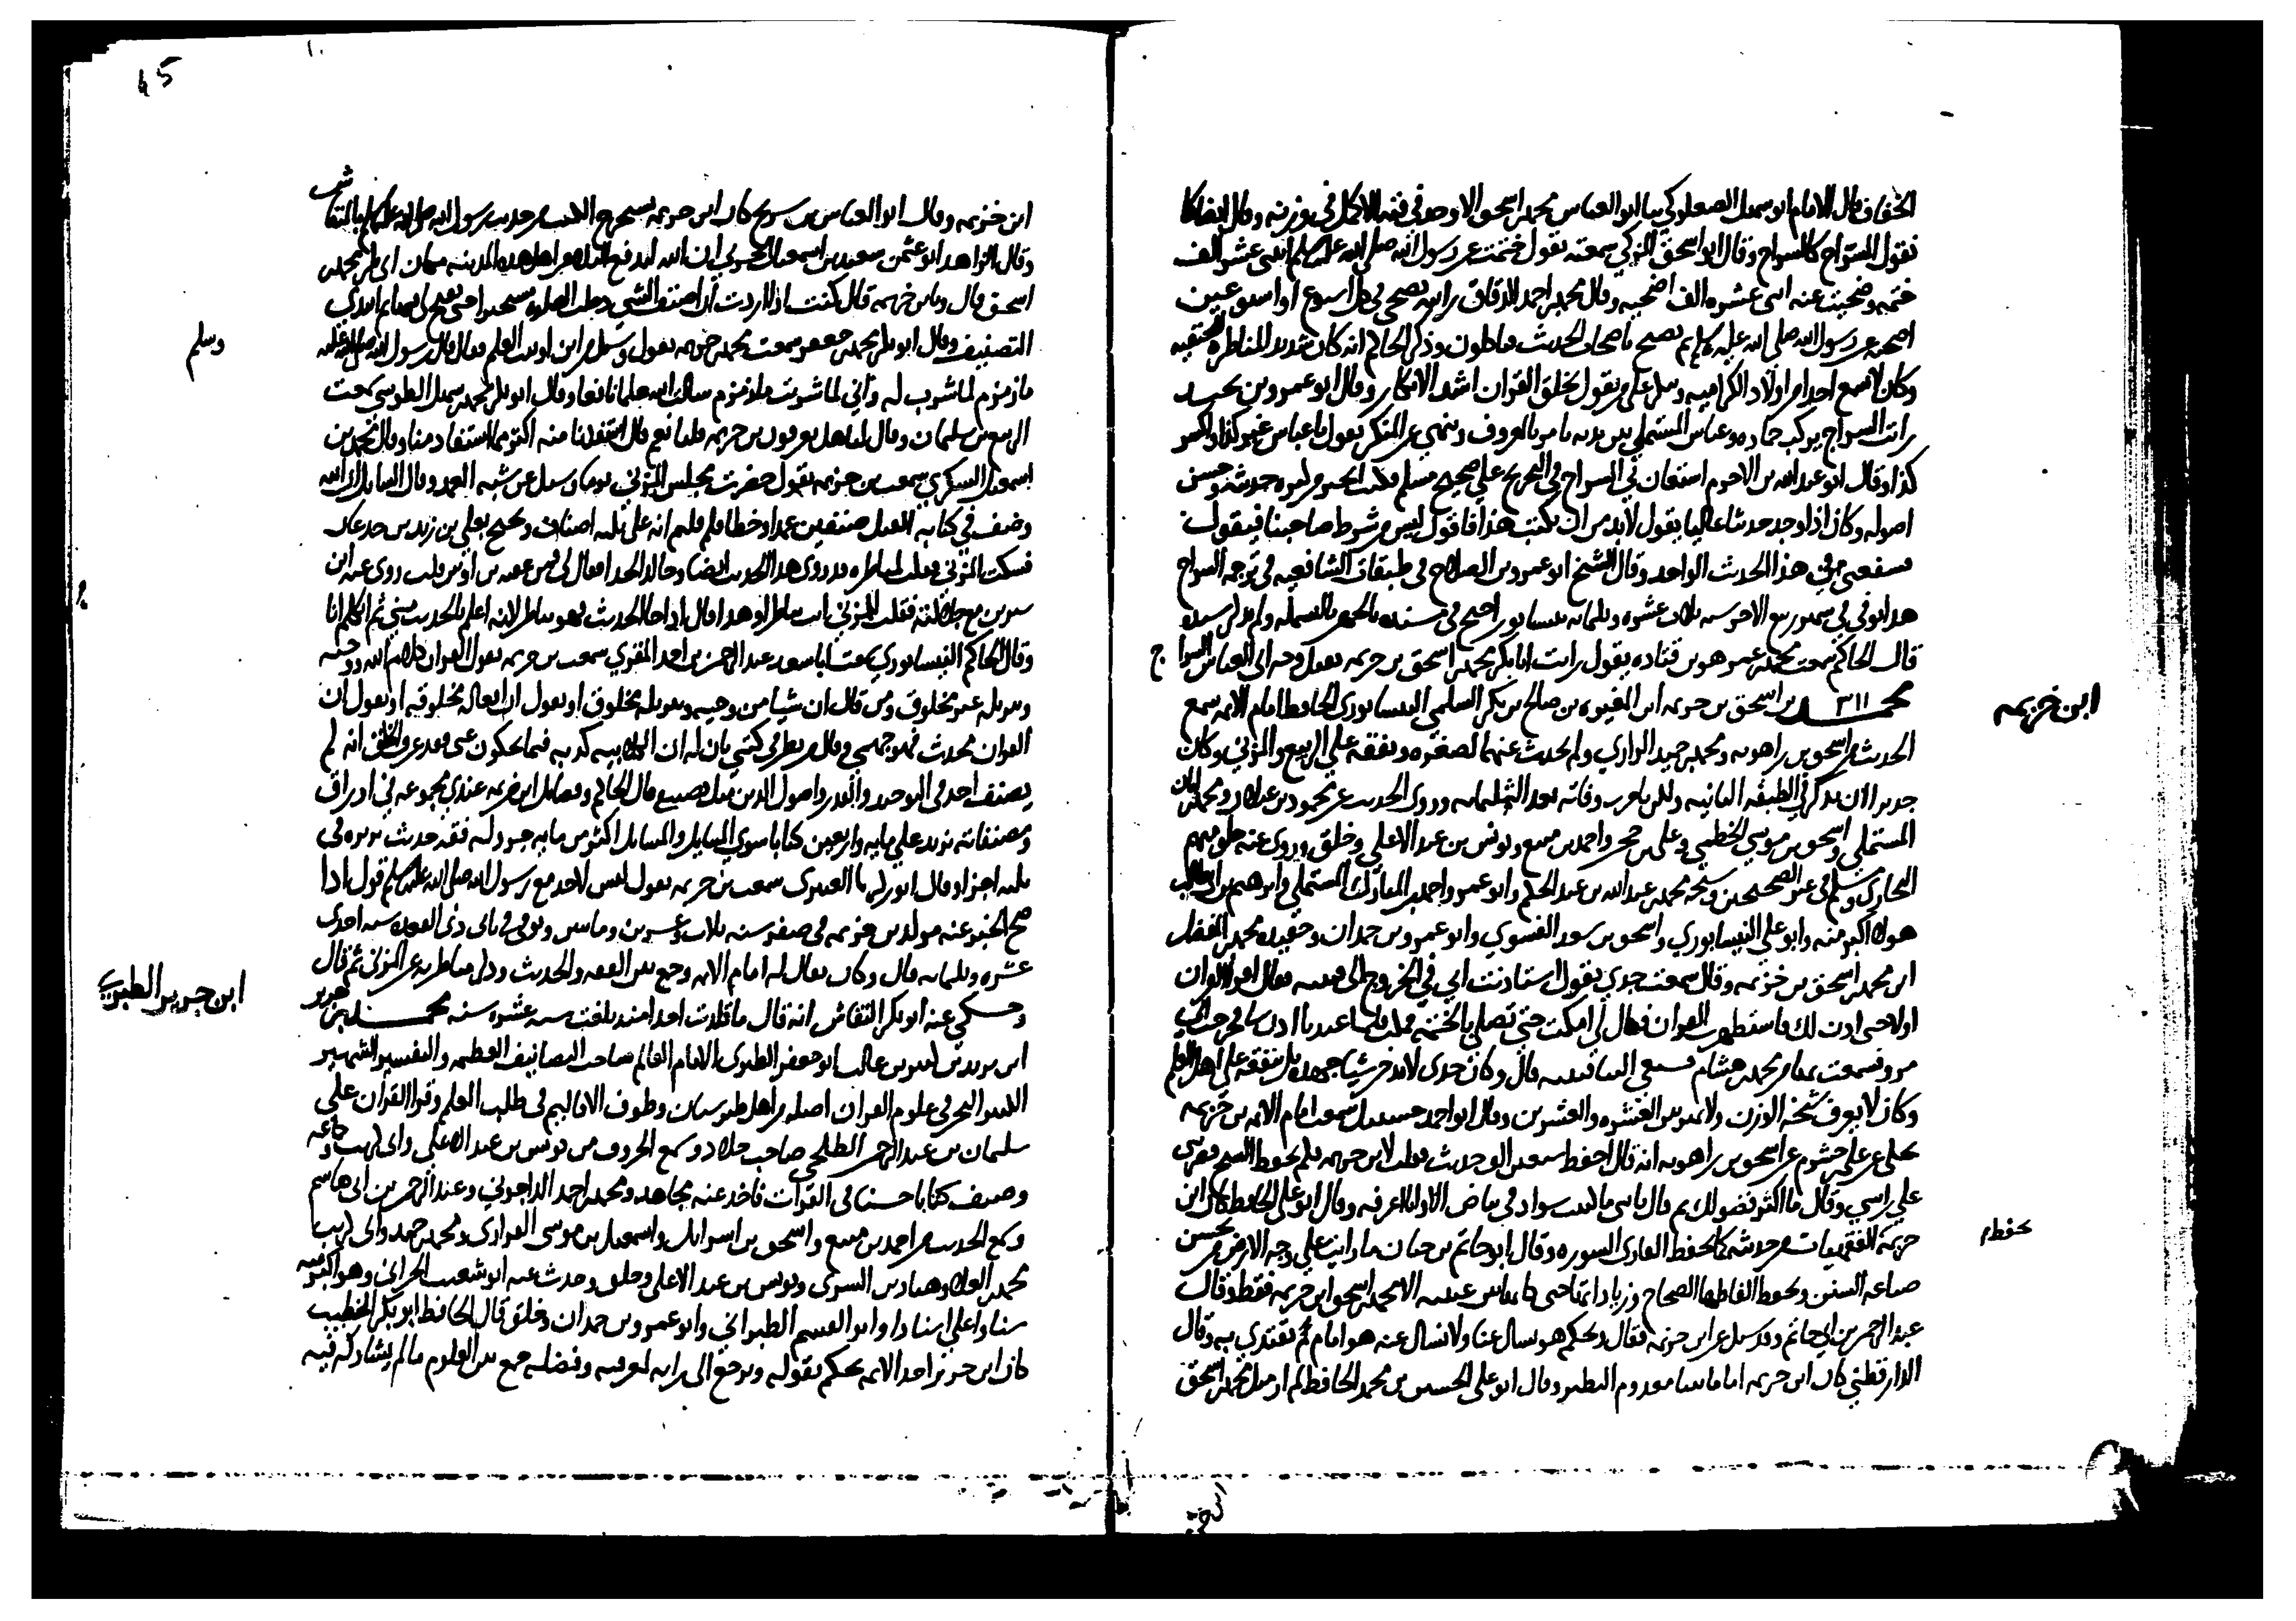 الخفاف قال الامام ابو سهل الصعلوكي ثنا ابو العباس محمد بن اسحق الاوحد في فنه الاكمل في وزنه وقال ايضا كنا
نقول السراج كالسراج وقال ابو اسحق المزكي سمعته يقول ختمت عن رسول الله صلى الله عليه وسلم اثنى عشر الف
ختمه وضحيت عنه اثنى عشره الف اضحيه وقال محمد بن احمد الدقاق رايته يضحي في كل اسبوع او اسبوعين
اضحيه عن رسول الله صلى الله عليه وسلم ثم يصيح باصحاب الحديث فياكلون وذكر الحاكم انه كان شديد المناظره
وكان لا يسمع احدا من اولاد الكلابيه ومن يقول بخلق القران اشد الانكار وقال ابو عمرو بن نجيد
رايت السراج يركب حماره وعباس المستملي بين يديه يامر بالمعروف وينهى عن المنكر يقول يا عباس غير كذا واكسر
كذا وقال ابو عبد الله بن الاخرم استعان بي السراج في التخريج على صحيح مسلم فكنت اتحير من كثره حديثه وحسن
اصوله وكان اذا وجد حديثا عاليا يقول لا بد من ان يكتب هذا فاقول ليس من شرط صاحبنا فيقول
فشفعني في هذا الحديث الواحد وقال الشيخ ابو عمرو بن الصلاح في طبقات الشافعيه في ترجمه السراج
هذا توفي في شهر ربيع الاخر سنه ثلاث عشره وثلثمايه بنيسابور احتج في مسنده بالجهر بالبسمله
قال الحاكم سمعت محمد بن عمرو بن قتاده يقول رايت ابا بكر محمد بن اسحق بن خزيمه يقبل وجه ابي العباس السراج
محمد ٣١١ بن اسحق بن خزيمه ابن المغيره بن صالح بن بكر السلمي النيسابوري الحافظ امام الايمه سمع
ابن خزيمه
الحديث من اسحق بن راهويه ومحمد بن حميد الرازي ولم يحدث عنهما لصغره وتفقه على الربيع والمزني وكان
جديرا ان يذكر في الطبقه الثانيه ولكن تاخرت وفاته بعد الثلثمايه وروى الحديث عن محمود بن غيلان ومحمد بن ابان
المستملي واسحق بن موسى الخطمي وعلي بن حجر واحمد بن منيع ويونس بن عبد الاعلى وخلق وروى عنه خلق منهم
البخاري ومسلم في غير الصحيحين وشيخه محمد بن عبد الله بن عبد الحكم وابو عمرو احمد بن المبارك المستملي وابرهيم بن ابي طالب
هولاء اكبر منه وابو علي النيسابوري واسحق بن سعد الفسوي وابو عمرو بن حمدان وحفيده محمد بن الفضل
ابن محمد بن اسحق بن خزيمه وقال سمعت جدي يقول استاذنت ابي في الخروج الى قتيبه فقال اقرا القران
اولا حتى اذن لك فاستظهرت القران فقال لي امكث حتى تصلي بالختمه ففعلت فلما عيدنا اذن لي فخرجت الى
مرو وسمعت بمرو من محمد بن هشام فنعي الينا قتيبه قال وكان جدي لا يدخر شيا جهده بل ينفقه على اهل العلم
وكان لا يعرف سنجه الوزن ولا يميز بين العشره والعشرين وقال ابو احمد حسينك سمعت امام الايمه بن خزيمه
يحكي عن علي بن خشرم عن اسحق بن راهويه انه قال احفظ سبعين الف حديث فقلت لابن خزيمه فكم يحفظ الشيخ فضربني
على راسي وقال ما اكثر فضولك ثم قال يا بني ما كتبت سوادا في بياض الا وانا اعرفه وقال ابو علي الحافظ كان ابن
خزيمه الفقهيات من حديثه كما يحفظ القاري السوره وقال ابو حاتم بن حبان ما رايت على وجه الارض من يحسن
يحفظ م
صناعه السنن ويحفظ الفاظها الصحاح وزياداتها حتى كانها بين عينيه الا محمد بن اسحق ابن خزيمه فقط وقال
عبد الرحمن بن ابي حاتم وقد سئل عن ابن خزيمه فقال ويحكم هو يسال عنا ولا نسال عنه هو امام يقتدى به وقال
الدارقطني كان ابن خزيمه اماما ثبتا معدوم النظير وقال ابو علي الحسين بن محمد الحافظ لم ار مثل محمد بن اسحق
45
ابن خزيمه وقال ابو العباس بن سريج كان ابن خزيمه يستخرج النكت من حديث رسول الله صلى الله عليه وسلم بالمنقاش
وقال الزاهد ابو عثمن سعيد بن اسمعيل الحيري ان الله ليدفع البلاء عن اهل هذه المدينه بمكان ابي بكر محمد بن
اسحق قال وثنا بن خزيمه قال كنت اذا اردت ان اصنف الشي دخلت الصلاه مستخيرا حتى يفتح لي ثم ابتدي
التصنيف وقال ابو بكر محمد بن جعفر سمعت محمد بن خزيمه يقول وسئل من اين اوتيت العلم فقال قال رسول الله صلى الله عليه
وسلم
ما زمزم لما شرب له واني لما شربت ما زمزم سالت الله علما نافعا وقال ابو بكر محمد بن سهل الطوسي سمعت
الربيع بن سليمان وقال لنا هل تعرفون بن خزيمه قلنا نعم قال استفدنا منه اكثر مما استفاد منا وقال محمد بن
اسمعيل السكري سمعت بن خزيمه يقول حضرت مجلس المزني يوما وسئل عن شبه العمد وقال السايل ان الله
وصف في كتابه القتل صنفين عمدا وخطا فلم قلتم انه على ثلثه اصناف وتحتج بعلي بن زيد بن جدعان
فسكت المزني فقلت لمناظره قد روى هذا الحديث ايضا وخالد الحذا فقال لي فمن عقبه بن اوس قلت روى عنه ابن
سيرين مع جلالته فقلت للمزني انت تناظر او هذا قال اذا جا الحديث فهو يناظر لانه اعلم بالحديث مني ثم اتكلم انا
وقال الحاكم النيسابوري سمعت ابا سعد عبد الرحمن بن احمد المقري سمعت بن خزيمه يقول القران كلام الله ووحيه
وتنزيله غير مخلوق ومن قال ان شيا من وحيه وتنزيله مخلوق او يقول ان افعاله مخلوقه او يقول ان
القران محدث فهو جهمي وقال من نظر في كتبي بان له ان الكلابيه كذبه فيما يحكون عني وقد عرف الخلق انه لم
يصنف احد في التوحيد والقدر واصول الدين مثل تصنيفي قال الحاكم وفضايل ابن خزيمه عندي مجموعه في اوراق
ومصنفاته تزيد على مايه واربعين كتابا سوى المسايل والمسايل اكثر من مايه جزو وله فقه حديث بريره في
ثلثه اجزا وقال ابو زكريا العنبري سمعت بن خزيمه يقول ليس لاحد مع رسول الله صلى الله عليه وسلم قول اذا
صح الخبر عنه مولد بن خزيمه في صفر سنه ثلاث وعشرين ومايتين وتوفي في ثاني ذي القعده سنه احدى
عشره وثلثمايه قال وكان يقال له امام الايمه وجمع بين الفقه والحديث وذكر مناظرته عن المزني ثم قال
وحكي عنه ابو بكر النقاش انه قال ما قلدت احدا منذ بلغت ست عشره سنه محمد بن جرير
ابن جرير الطبري
ابن يزيد بن كثير بن غالب ابو جعفر الطبري الامام العالم صاحب التصانيف العظيمه والتفسير الشهير
البحر في علوم القران اصله من اهل طبرستان وطوف الاقاليم في طلب العلم وقرا القران على
سليمان بن عبد الرحمن الطلحي صاحب خلاد وسمع الحروف من يونس بن عبد الاعلى وابي كريب وجماعه
وصنف كتابا حسنا في القراات فاخذ عنه مجاهد ومحمد بن احمد الداجوني وعبد الرحمن بن ابي هاشم
وسمع الحديث من احمد بن منيع واسحق بن اسرايل واسمعيل بن موسى الفزاري ومحمد بن حميد وابي كريب
محمد بن العلاء وهناد بن السري ويونس بن عبد الاعلى وخلق وحدث عنه ابو شعيب الحراني وهو اكبر منه
سنا واعلى اسنادا وابو القسم الطبراني وابو عمرو بن حمدان وخلق قال الحافظ ابو بكر الخطيب
كان ابن جرير احد الايمه يحكم بقوله ويرجع الى رايه لمعرفته وفضله جمع من العلوم ما لم يشاركه فيه